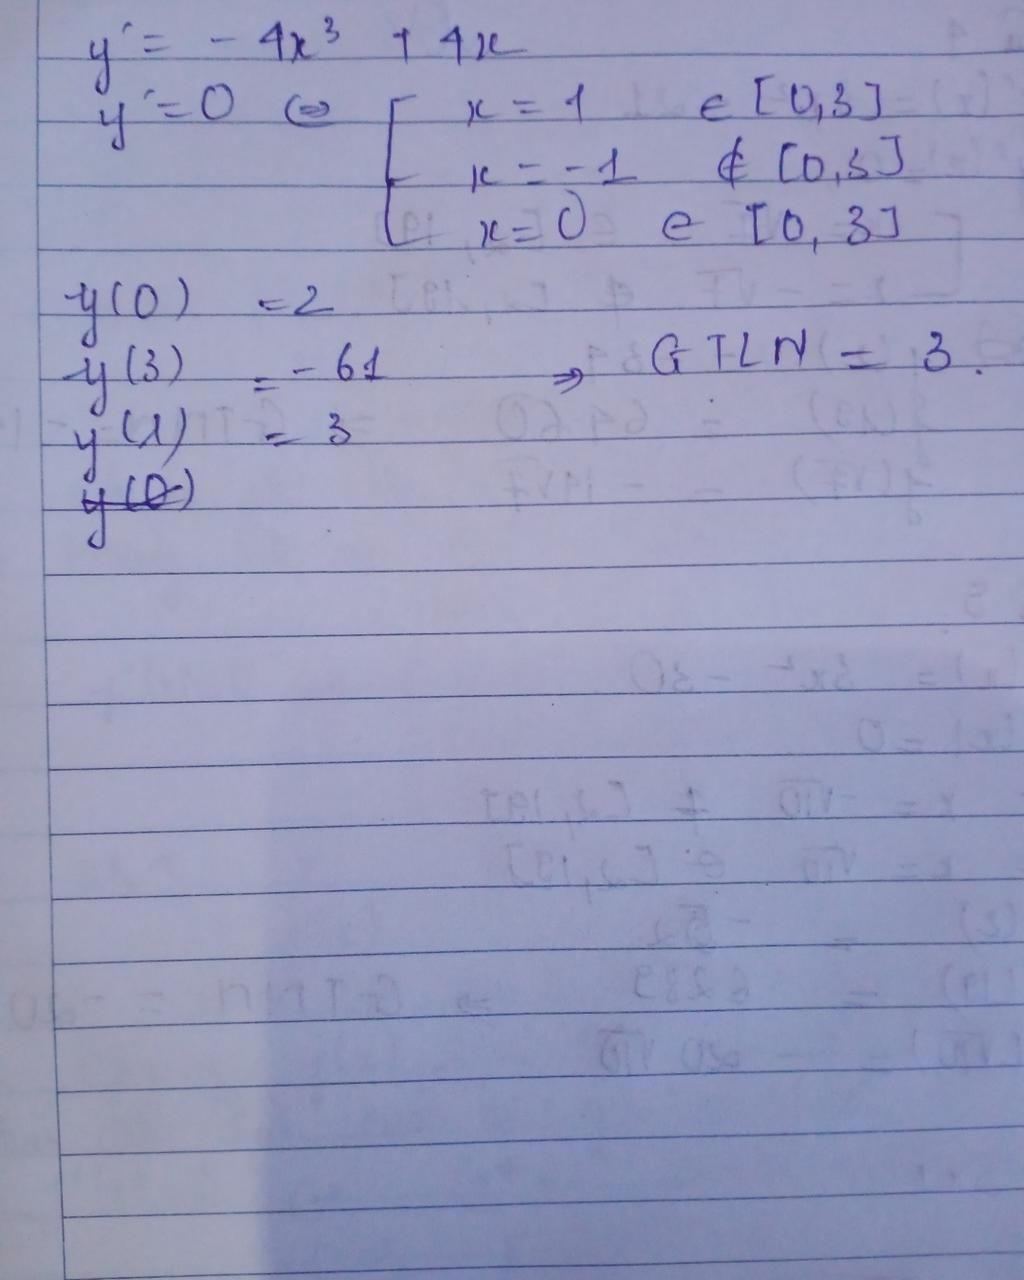 y' = - 4x³ + 4x
y' = 0 ⇔ [ x = 1 ∈ [0,3]
x = -1 ∉ [0,3]
x = 0 ∈ [0, 3]
y(0) = 2
y(3) = - 61 ⇒ GTLN = 3.
y(1) = 3
y(0)